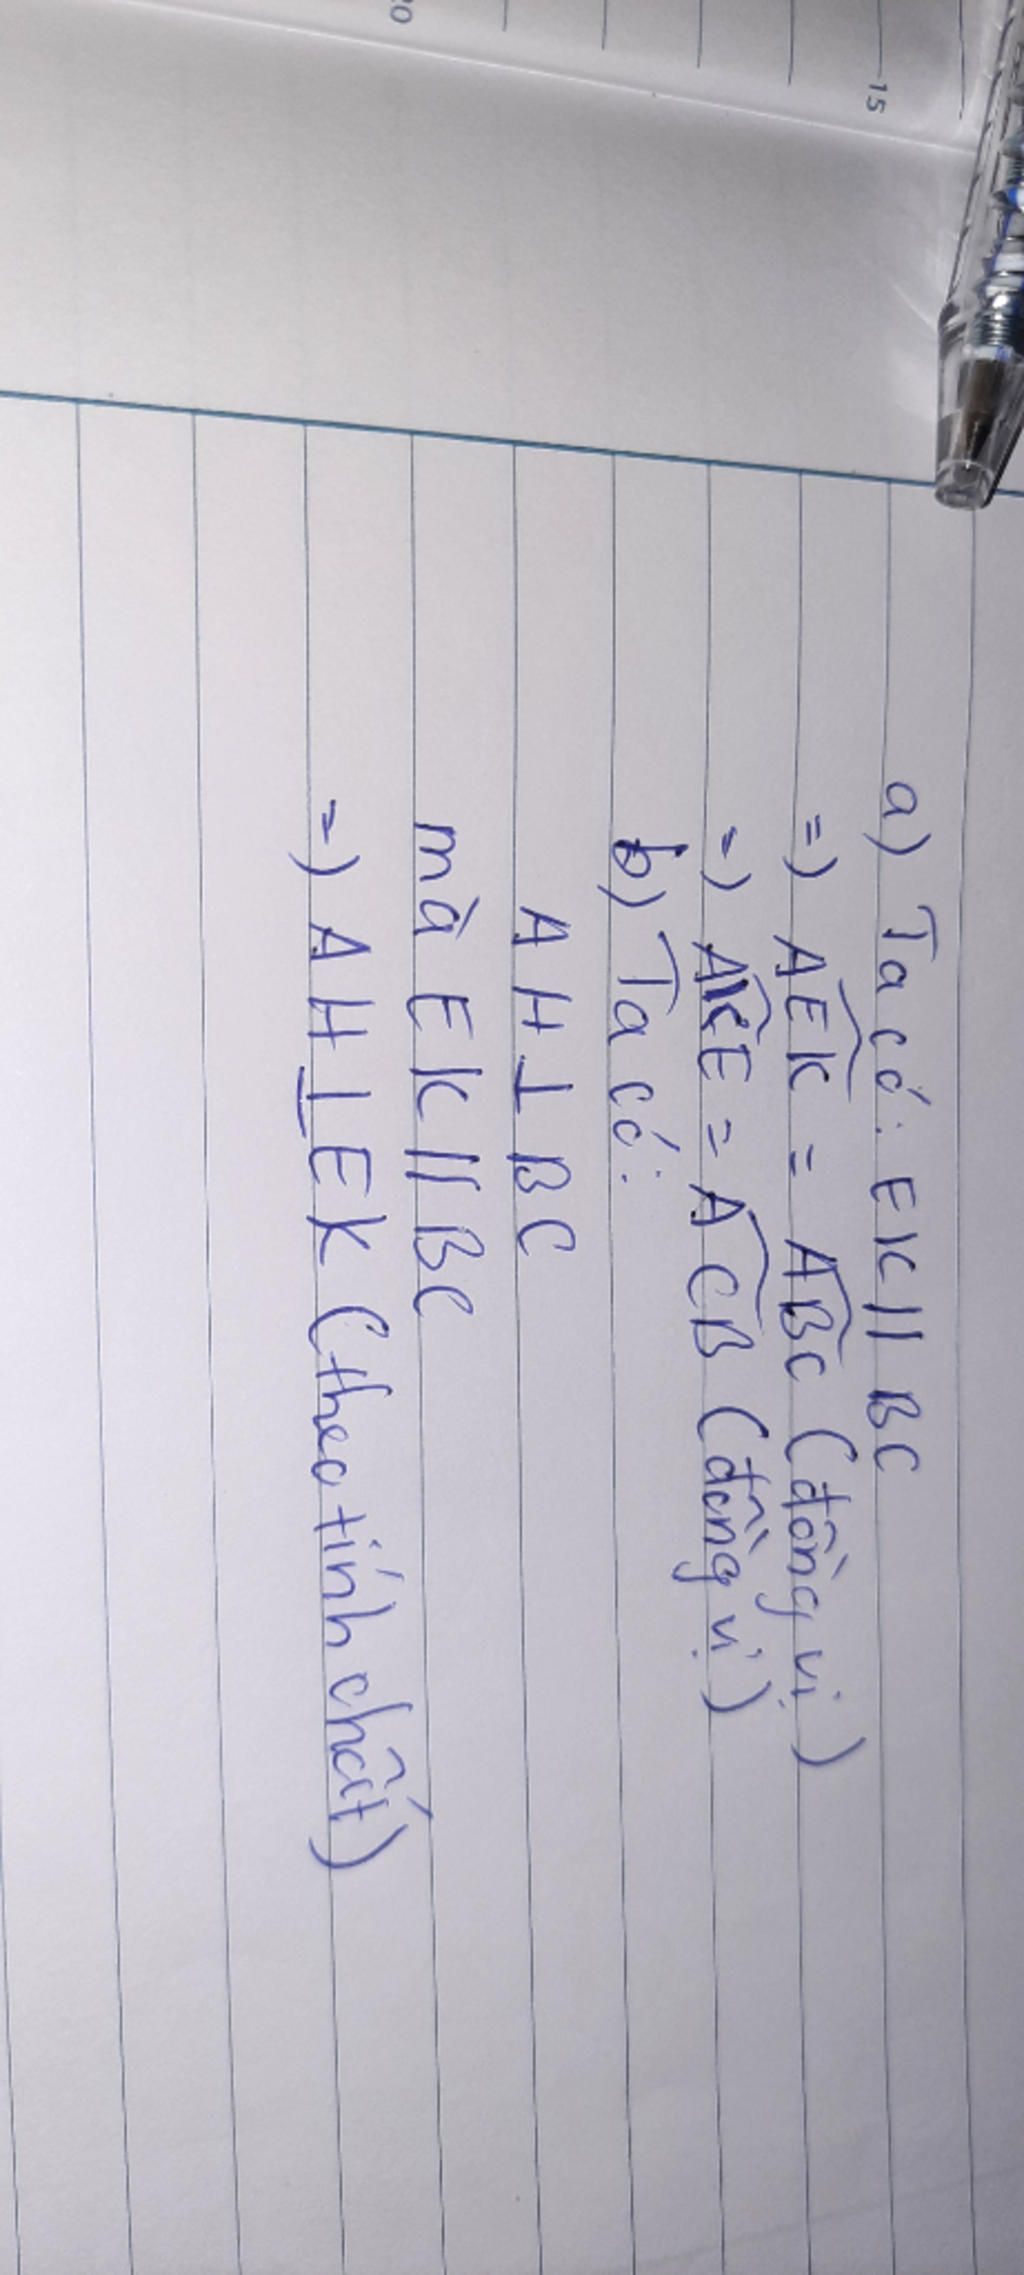 15
20
a) Ta có: EK // BC
=) AEK = ABC (đồng vị)
=) AKE = ACB (đồng vị)
b) Ta có:
AH ⊥ BC
mà EK // BC
=) AH ⊥ EK (theo tính chất)